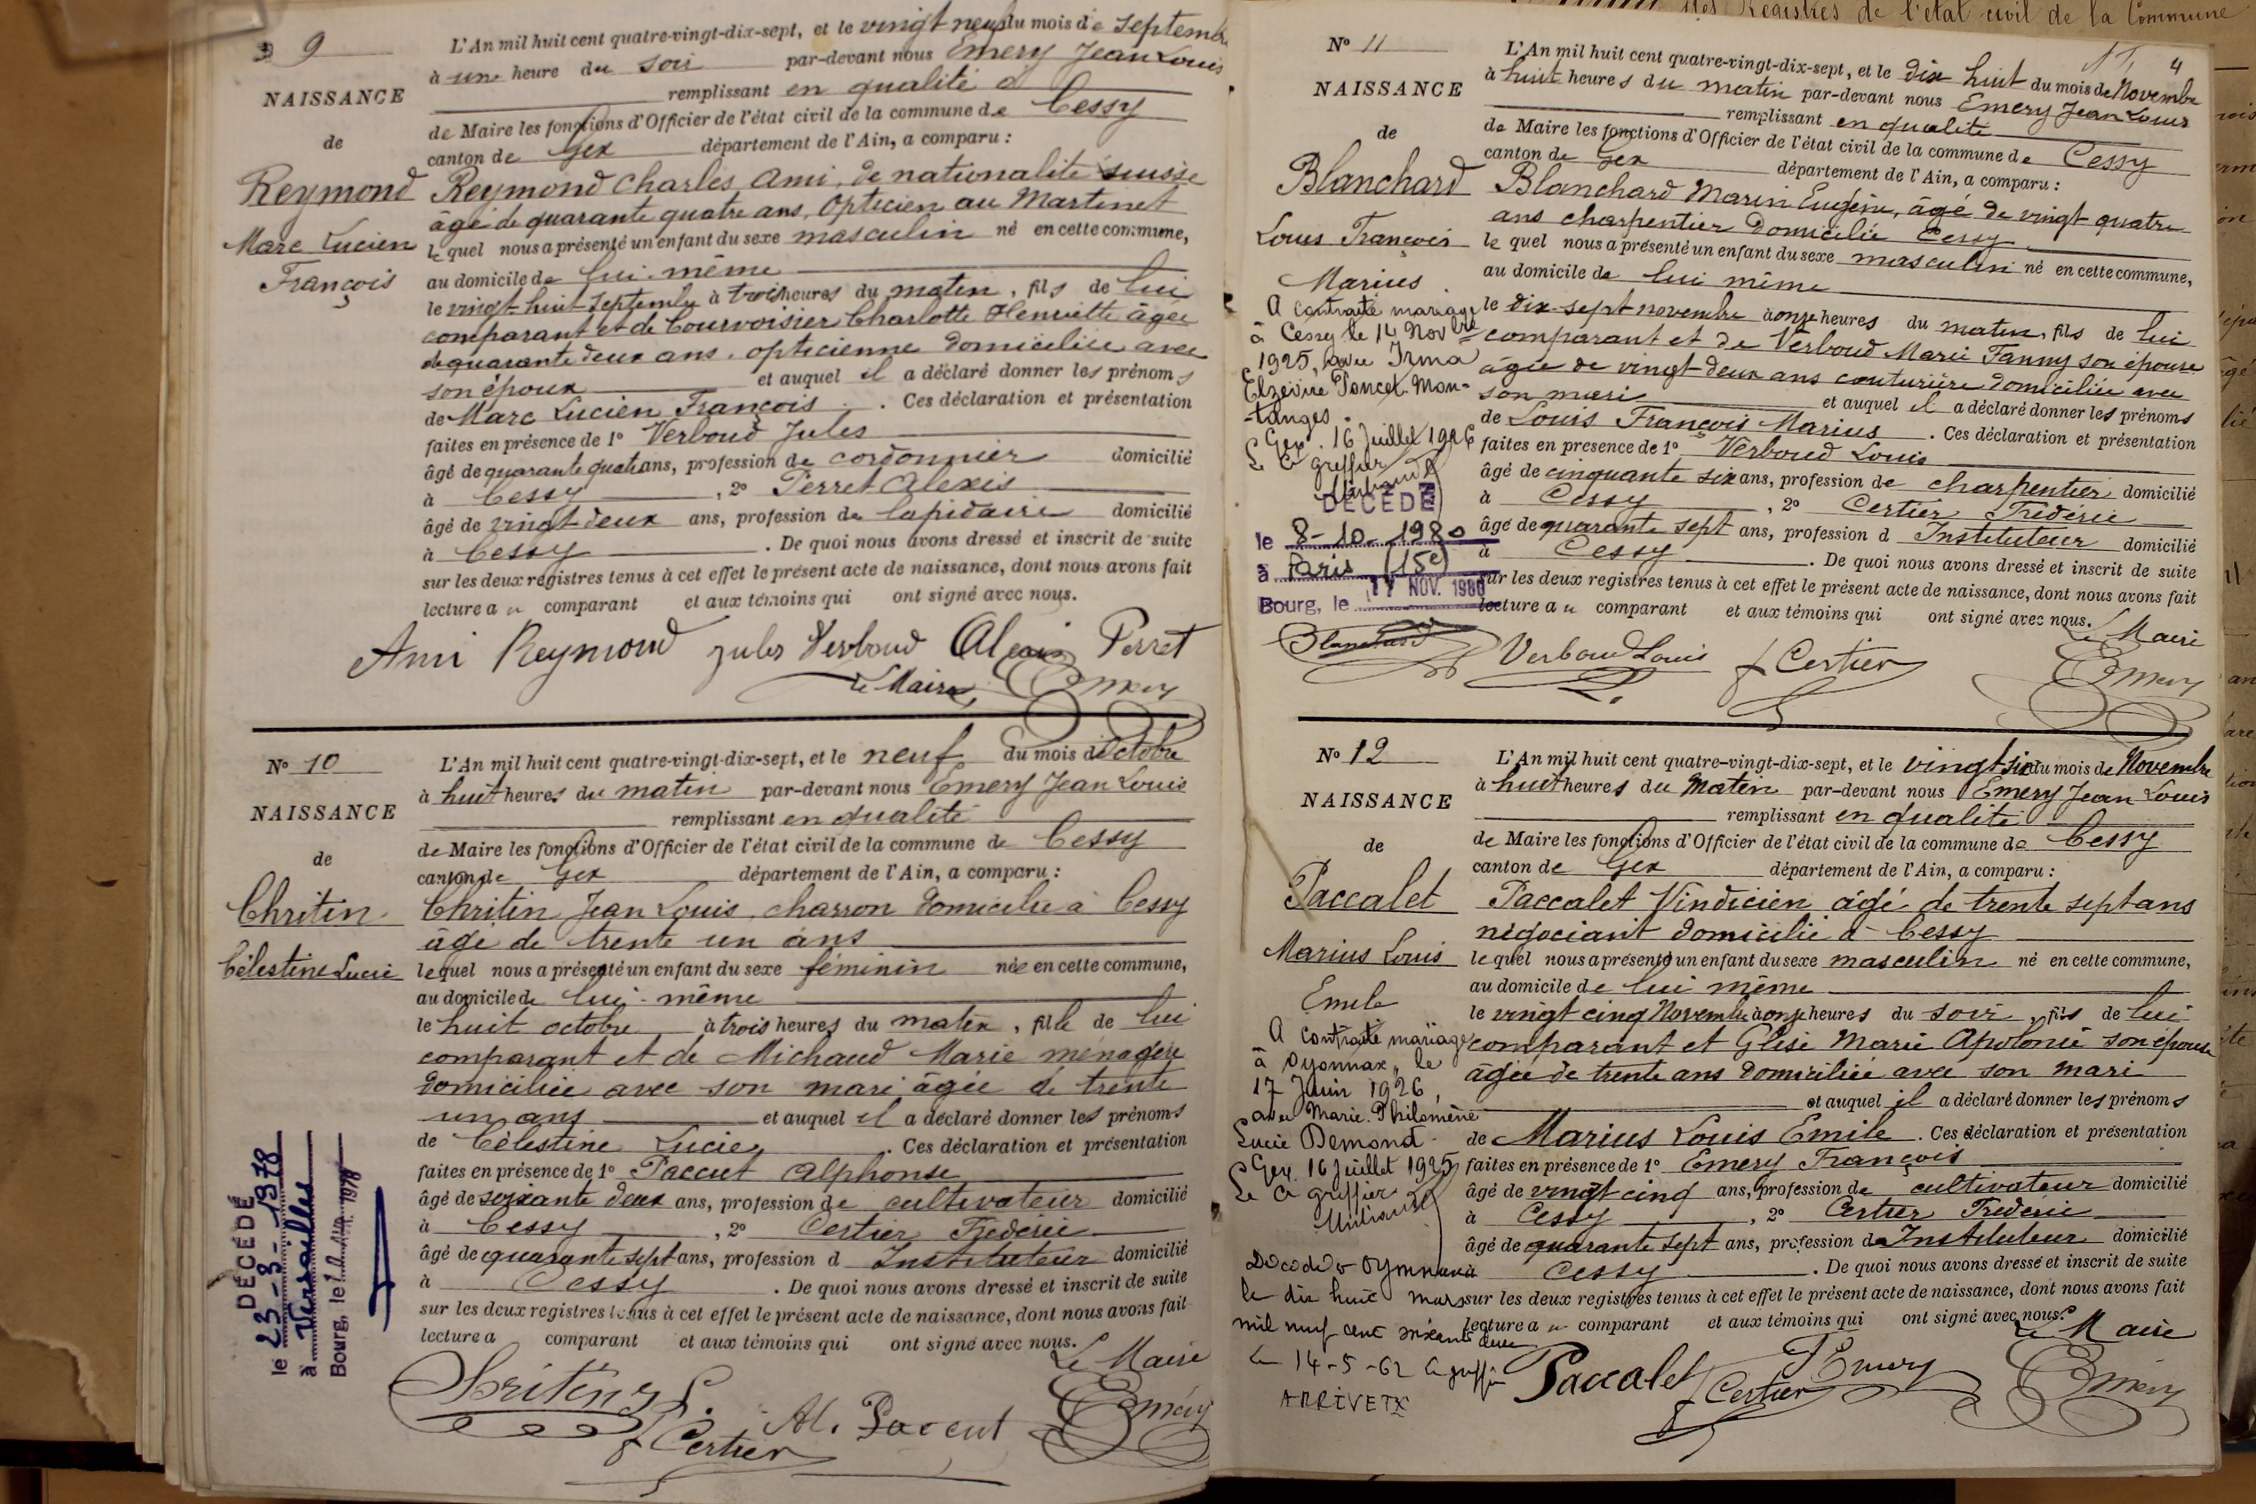 9
NAISSANCE
de
Reymond
Marc Lucien
François
L'An mil huit cent quatre-vingt-dix-sept, et le vingt neuf du mois de septembre
à une heure du soir par-devant nous Emery Jean Louis
remplissant en qualité
de Maire les fonctions d'Officier de l'état civil de la commune de Cessy
canton de Gex département de l'Ain, a comparu :
Reymond Charles Ami, de nationalité suisse
âgé de quarante quatre ans, Opticien au Martinet
lequel nous a présenté un enfant du sexe masculin né en cette commune,
au domicile de lui-même
le vingt-huit septembre à trois heures du matin, fils de lui
comparant et de Courvoisier Charlotte Henriette âgée
de quarante deux ans, opticienne domiciliée avec
son époux et auquel il a déclaré donner les prénoms
de Marc Lucien François. Ces déclaration et présentation
faites en présence de 1° Verboud Jules
âgé de quarante quatre ans, profession de cordonnier domicilié
à Cessy, 2° Perret Alexis
âgé de vingt deux ans, profession de lapidaire domicilié
à Cessy. De quoi nous avons dressé et inscrit de suite
sur les deux registres tenus à cet effet le présent acte de naissance, dont nous avons fait
lecture au comparant et aux témoins qui ont signé avec nous.
Ami Reymond Jules Verboud Alexis Perret
Le Maire Emery
N° 10
NAISSANCE
de
Chritin
Célestine Lucie
L'An mil huit cent quatre-vingt-dix-sept, et le neuf du mois d'Octobre
à huit heures du matin par-devant nous Emery Jean Louis
remplissant en qualité
de Maire les fonctions d'Officier de l'état civil de la commune de Cessy
canton de Gex département de l'Ain, a comparu :
Chritin Jean Louis, charron domicilié à Cessy
âgé de trente un ans
lequel nous a présenté un enfant du sexe féminin née en cette commune,
au domicile de lui-même
le huit octobre à trois heures du matin, fille de lui
comparant et de Michaud Marie ménagère
domiciliée avec son mari âgée de trente
un ans et auquel il a déclaré donner les prénoms
de Célestine Lucie. Ces déclaration et présentation
faites en présence de 1° Paccut Alphonse
âgé de soixante deux ans, profession de cultivateur domicilié
à Cessy, 2° Certier Frédéric
âgé de quarante sept ans, profession d Instituteur domicilié
à Cessy. De quoi nous avons dressé et inscrit de suite
sur les deux registres tenus à cet effet le présent acte de naissance, dont nous avons fait
lecture a comparant et aux témoins qui ont signé avec nous.
Le Maire
Chritin J. L.
f Certier Al. Paccut Emery
DÉCÉDÉ
le 23-3-1978
à Versailles
Bourg, le
N° 11
NAISSANCE
de
Blanchard
Louis François
Marius
A contracté mariage
à Cessy le 14 Novbre
1925, avec Irma
Elzévire Poncet-Mon-
tanges.
Gex. 16 Juillet 1926
Le Cs greffier
DÉCÉDÉ
le 8-10-1980
à Paris (15e)
Bourg, le 17 NOV. 1980
4
L'An mil huit cent quatre-vingt-dix-sept, et le dix huit du mois de Novembre
à huit heures du matin par-devant nous Emery Jean Louis
remplissant en qualité
de Maire les fonctions d'Officier de l'état civil de la commune de Cessy
canton de Gex département de l'Ain, a comparu :
Blanchard Marin Eugène, âgé de vingt-quatre
ans charpentier domicilié Cessy
lequel nous a présenté un enfant du sexe masculin né en cette commune,
au domicile de lui même
le dix-sept novembre à onze heures du matin, fils de lui
comparant et de Verboud Marie Fanny son épouse
âgée de vingt-deux ans couturière domiciliée avec
son mari et auquel il a déclaré donner les prénoms
de Louis François Marius. Ces déclaration et présentation
faites en présence de 1° Verboud Louis
âgé de cinquante six ans, profession de charpentier domicilié
à Cessy, 2° Certier Frédéric
âgé de quarante sept ans, profession d Instituteur domicilié
à Cessy. De quoi nous avons dressé et inscrit de suite
sur les deux registres tenus à cet effet le présent acte de naissance, dont nous avons fait
lecture au comparant et aux témoins qui ont signé avec nous.
Le Maire
Blanchard Verboud Louis f Certier Emery
N° 12
NAISSANCE
de
Paccalet
Marius Louis
Emile
A contracté mariage
à Oyonnax, le
17 Juin 1926,
avec Marie-Philomène
Lucie Demond.
Gex. 16 juillet 1925
Le Cs greffier
Décédé à Oyonnax
le dix huit mars
mil neuf cent soixante deux
Le 14-5-62 Le greffier
ARRIVETX
L'An mil huit cent quatre-vingt-dix-sept, et le vingt six du mois de Novembre
à huit heures du Matin par-devant nous Emery Jean Louis
remplissant en qualité
de Maire les fonctions d'Officier de l'état civil de la commune de Cessy
canton de Gex département de l'Ain, a comparu :
Paccalet Vindicien âgé de trente sept ans
négociant domicilié à Cessy
lequel nous a présenté un enfant du sexe masculin né en cette commune,
au domicile de lui même
le vingt cinq Novembre à onze heures du soir, fils de lui
comparant et Glise Marie Apolonie son épouse
âgée de trente ans domiciliée avec son mari
et auquel il a déclaré donner les prénoms
de Marius Louis Emile. Ces déclaration et présentation
faites en présence de 1° Emery François
âgé de vingt cinq ans, profession de cultivateur domicilié
à Cessy, 2° Certier Frédéric
âgé de quarante sept ans, profession d Instituteur domicilié
à Cessy. De quoi nous avons dressé et inscrit de suite
sur les deux registres tenus à cet effet le présent acte de naissance, dont nous avons fait
lecture au comparant et aux témoins qui ont signé avec nous.
Le Maire
Paccalet f Certier F Emery Emery
des Registres de l'état civil de la Commune